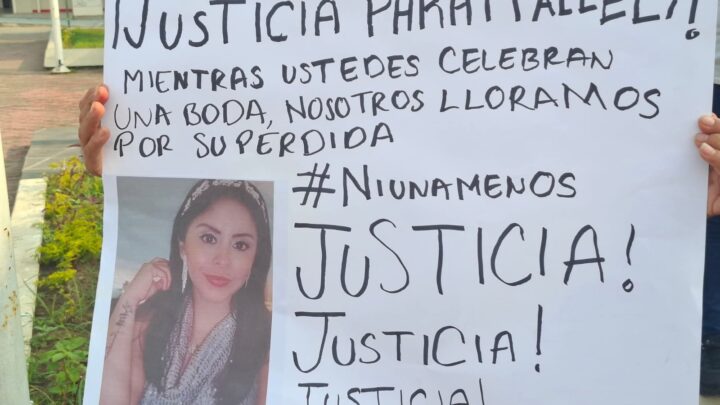 ¡JUSTICIA PARA
MIENTRAS USTEDES CELEBRAN
UNA BODA, NOSOTROS LLORAMOS
POR SU PÉRDIDA
#NIUNAMENOS
JUSTICIA!
JUSTICIA!
JUSTICIA!